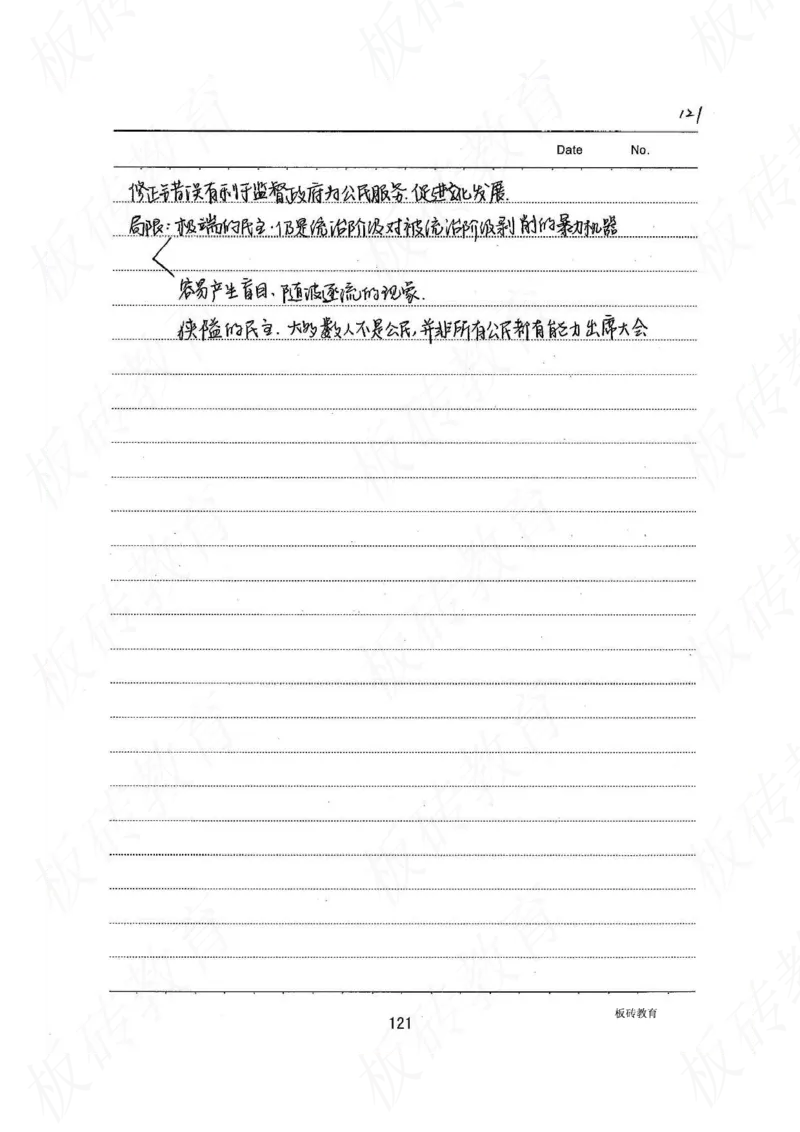 121
Date No.
修正错误有利于监督政府为公民服务.促进文化发展.
局限:极端的民主.仍是统治阶级对被统治阶级剥削的暴力机器
容易产生盲目、随波逐流的现象.
狭隘的民主.大多数人不是公民,并非所有公民都有能力出席大会
板砖教育
121